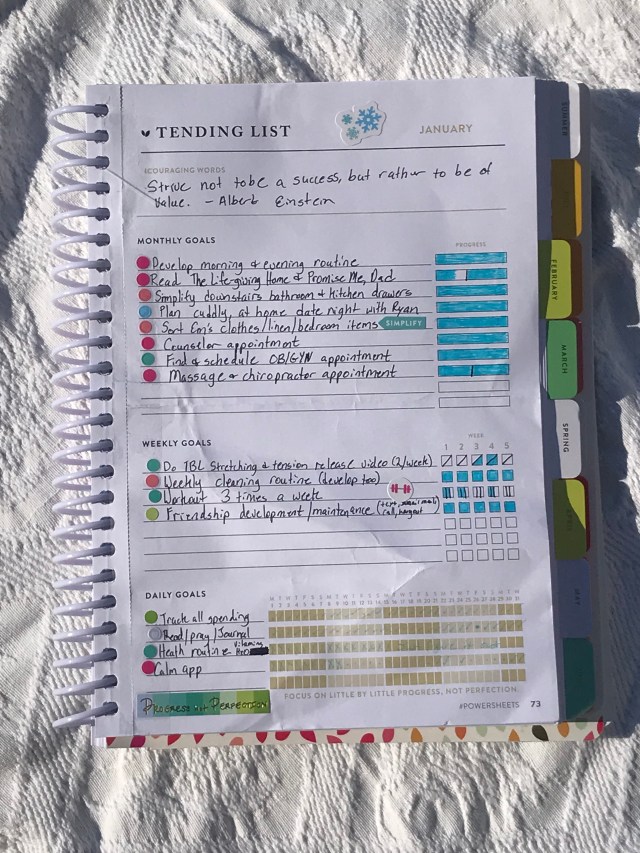 TENDING LIST
JANUARY
COURAGING WORDS
Strive not to be a success, but rather to be of
value. - Albert Einstein
MONTHLY GOALS
PROGRESS
Develop morning & evening routine
Read The Life-giving Home & Promise Me, Dad
Simplify downstairs bathroom & kitchen drawers
Plan cuddly, at home date night with Ryan
Sort Em's clothes/linen/bedroom items SIMPLIFY
Counselor appointment
Find & schedule OB/GYN appointment
Massage & chiropractor appointment
WEEKLY GOALS
WEEK
1 2 3 4 5
Do TBL Stretching & tension release video (2/week)
Weekly cleaning routine (develop too)
Workout 3 times a week
Friendship development/maintenance (text, call, hangout
DAILY GOALS
Track all spending
Read/pray/Journal
Heath routine vitamins
Calm app
PROGRESS not PERFECTION
FOCUS ON LITTLE BY LITTLE PROGRESS, NOT PERFECTION.
#POWERSHEETS 73
SUMMER
FEBRUARY
MARCH
SPRING
APRIL
MAY